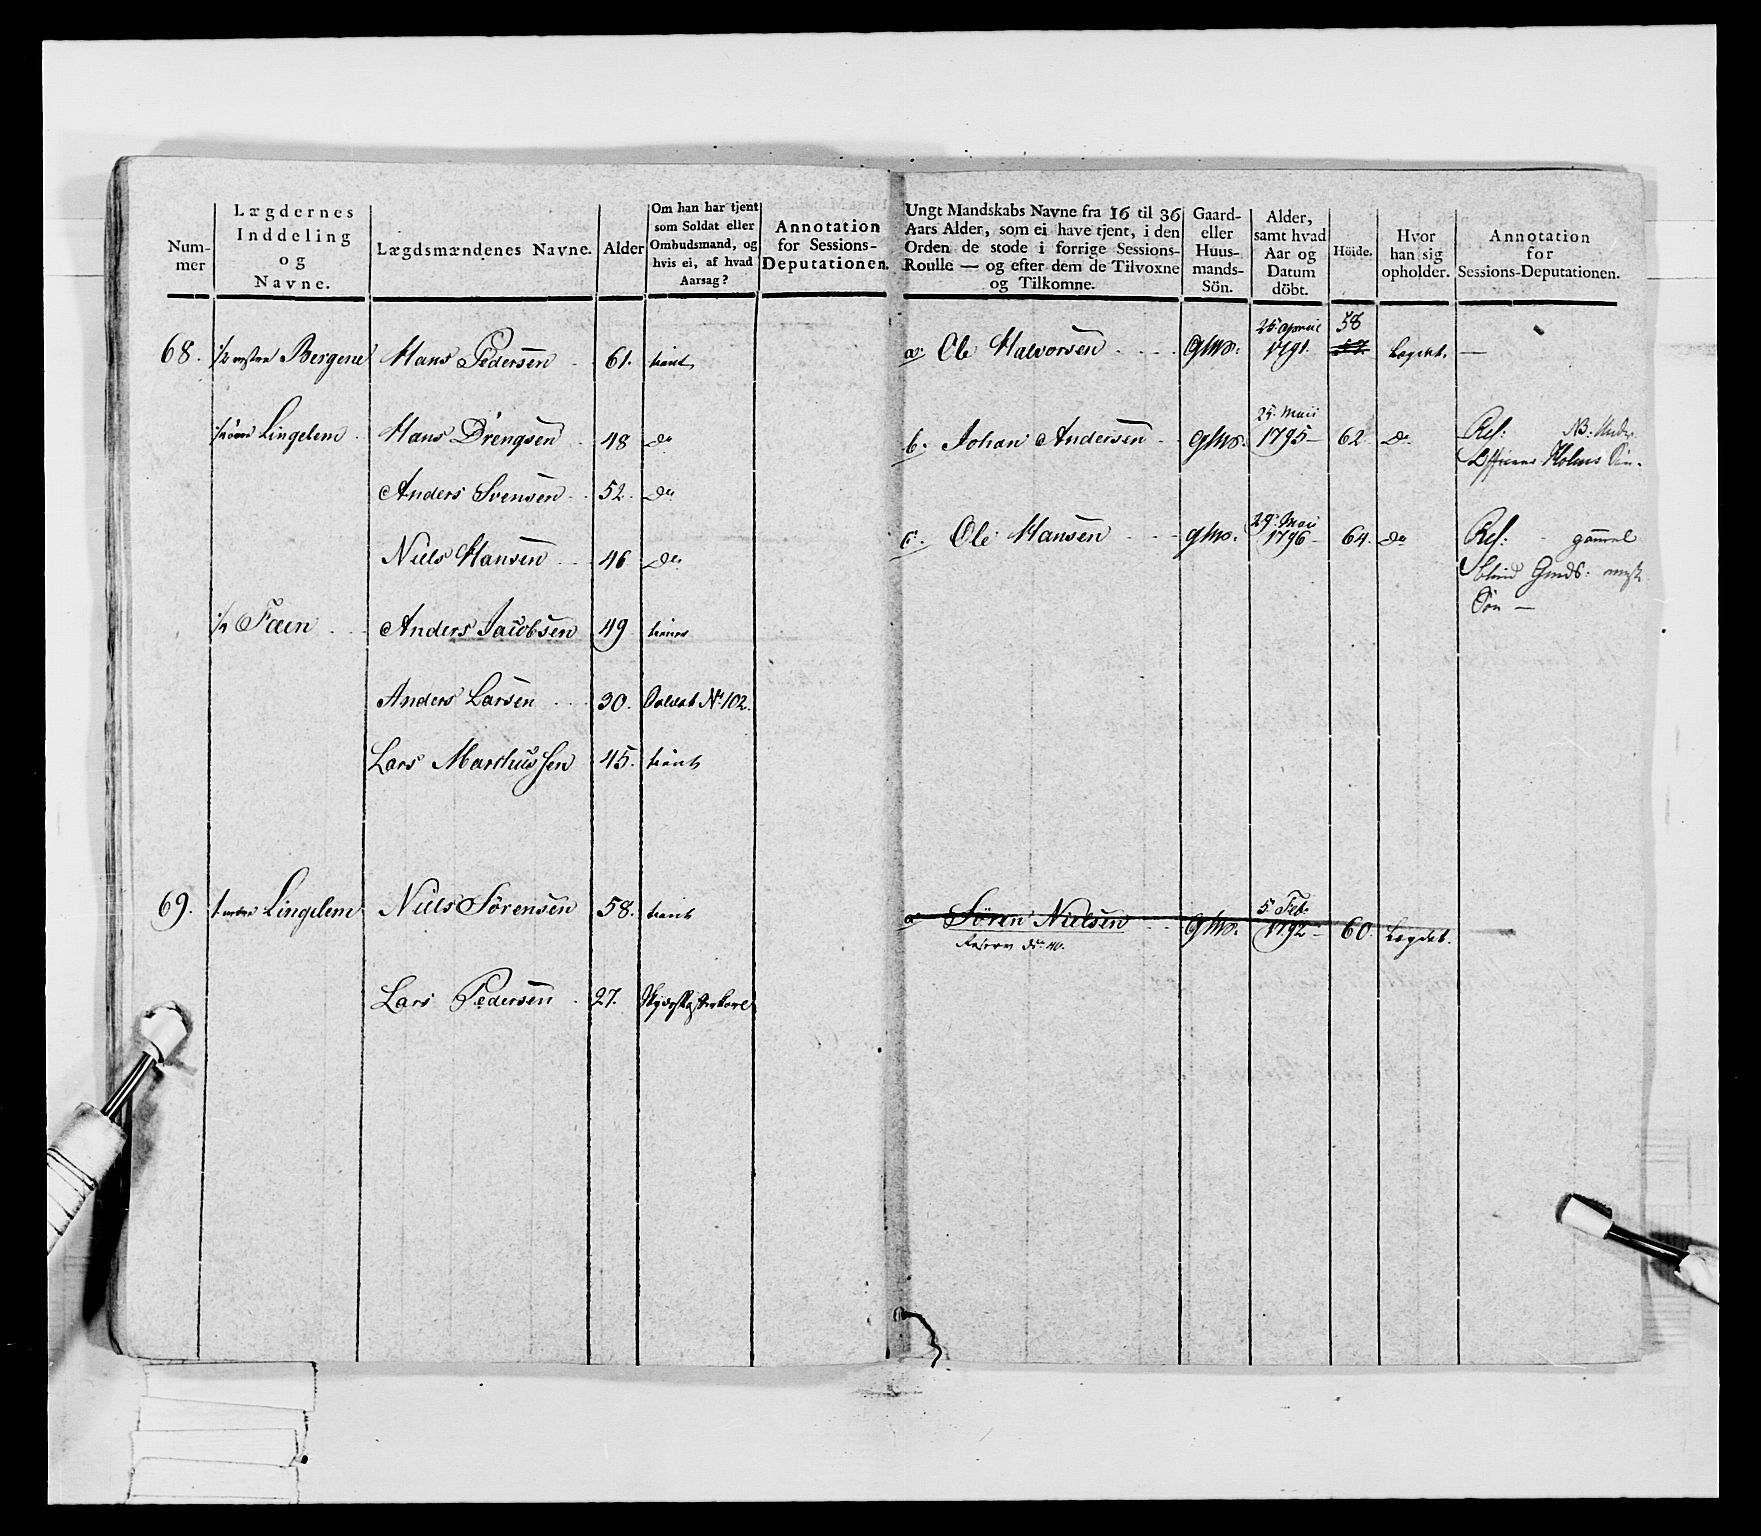 Num-
mer
Lægdernes
Inddeling
og
Navne.
Lægdsmændenes Navne.
Alder
Om han har tjent
som Soldat eller
Ombudsmand, og
hvis ei, af hvad
Aarsag?
Annotation
for Sessions-
Deputationen.
Ungt Mandskabs Navne fra 16 til 36
Aars Alder, som ei have tjent, i den
Orden de stode i forrige Sessions-
Roulle — og efter dem de Tilvoxne
og Tilkomne.
Gaard-
eller
Huus-
mands-
Sön.
Alder,
samt hvad
Aar og
Datum
döbt.
Höide.
Hvor
han sig
opholder.
Annotation
for
Sessions-Deputationen.
68. 1/2 Bergene Hans Pedersen 61. tient
a. Ole Halvorsen gms. 25 April 1791. 58 Lægdet. —
Lingelem Hans Drengsen 48 do
b. Johan Andersen gms. 25. Maii 1795 62. do Ref: NB: Under
Officeer Holms Søn.
Anders Svensen 52. do
c. Ole Hansen gms. 29. Maii 1796 64. do Ref: gammel
Niels Hansen 46 do
blind Gmds:
Søn —
Faen Anders Jacobsen 49
Anders Larsen 30. Soldat No 102.
Lars Marthussen 45. tient
69. 1 Lingelem Niels Sørensen 58. tient
a Søren Nielsen gms. 5 Feb. 1792 60. Lægdet.
Lars Pedersen 27.